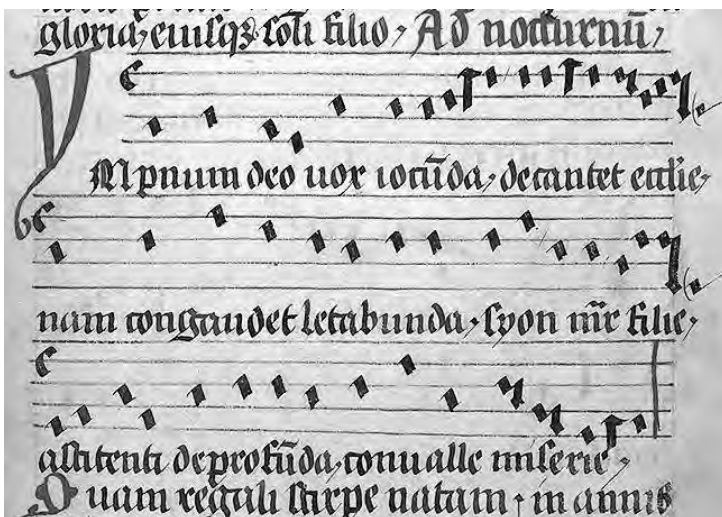 gloria, eiusqȝ soli filio, Ad nocturnū,
YMpnum deo uox iocūda, decantet ecclīe,
nam congaudet letabunda, syon mr̄e filie,
astitenti de profūda, conualle miserie,
Quam regali stirpe natam, in annis